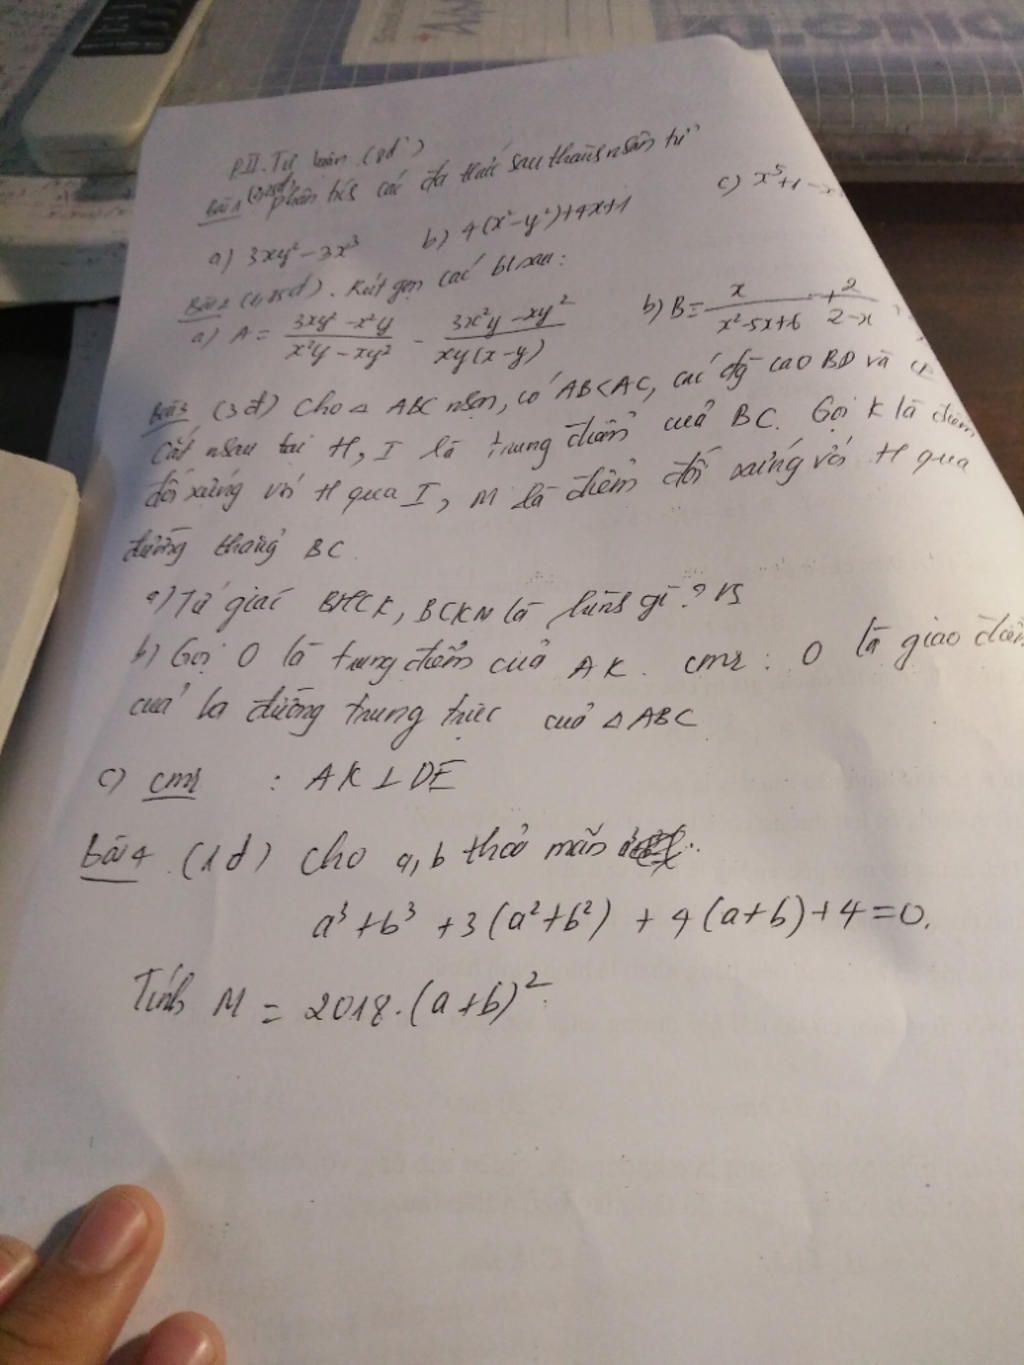 PII. Tự luận (8đ)
Bài 1 (2,25đ) phân tích các đa thức sau thành nhân tử
a) 3xy² - 3x³ b) 4(x² - y²) + 4x + 1 c) x⁵ + 1 - x
Bài 2 (1,25đ). Rút gọn các bt sau:
a) A = \frac{3xy² - x²y}{x²y - xy²} - \frac{3x²y - xy²}{xy(x-y)} b) B = \frac{x}{x² - 5x + 6} + \frac{2}{2-x}
Bài 3 (3đ) Cho △ ABC nhọn, có AB < AC, các đg cao BD và CE
cắt nhau tại H, I là trung điểm của BC. Gọi K là điểm
đối xứng với H qua I, M là điểm đối xứng với H qua
đường thẳng BC.
a) Tứ giác BHCK, BCKM là hình gì? Vs
b) Gọi O là trung điểm của AK. cmr: O là giao điểm
của ba đường trung trực của △ABC
c) cmr : AK ⊥ DE
Bài 4 (1đ) Cho a, b thoả mãn
a³ + b³ + 3(a² + b²) + 4(a+b) + 4 = 0.
Tính M = 2018.(a+b)²